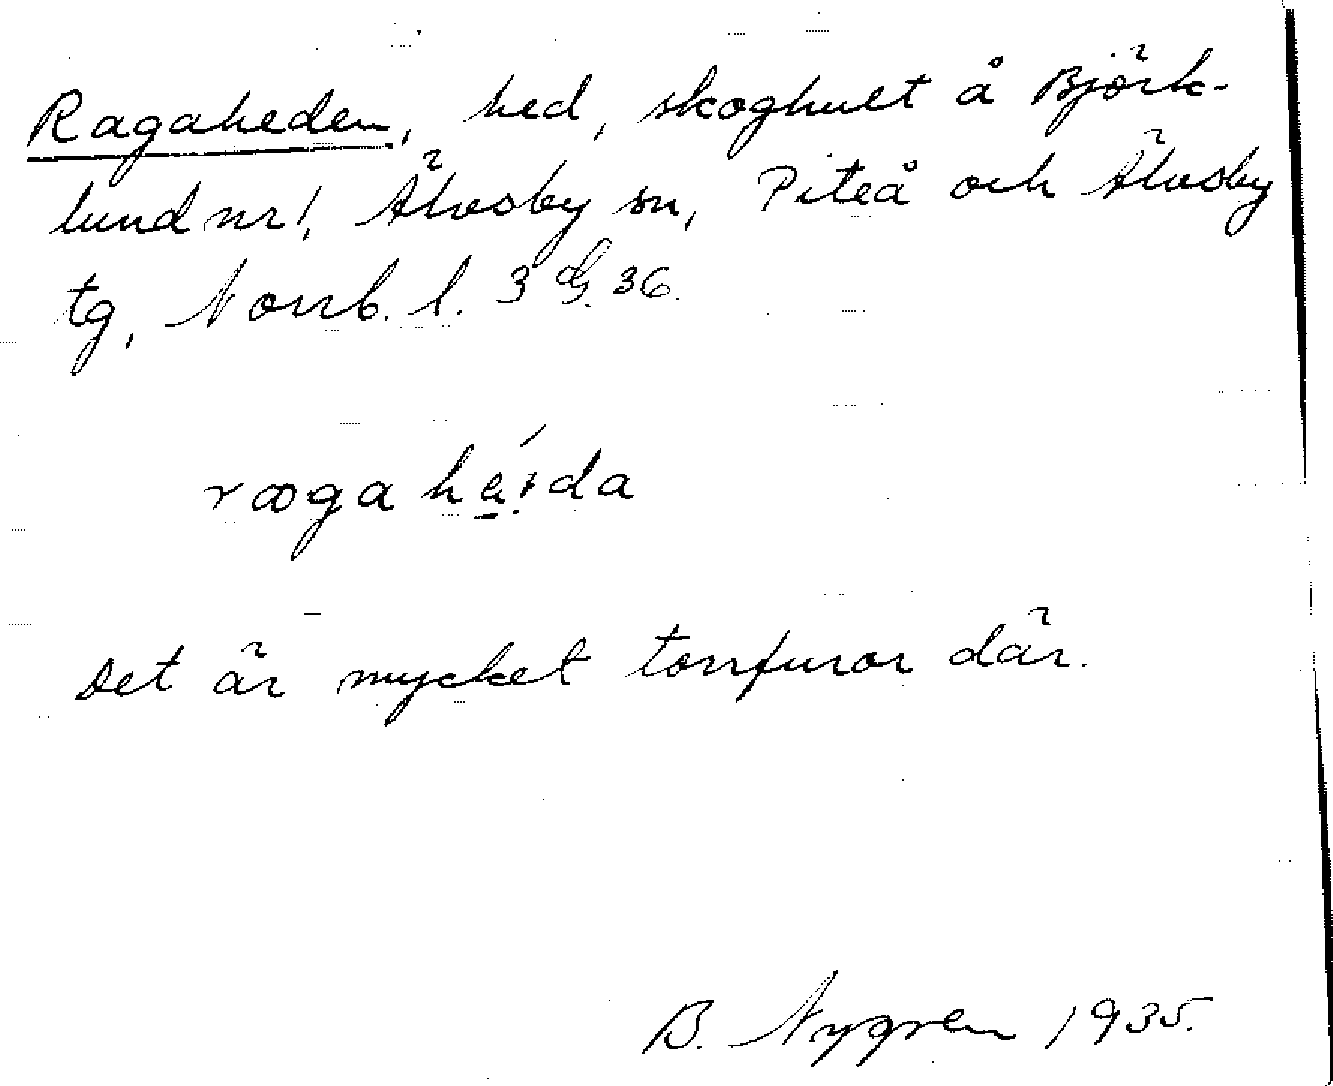 Ragaheden, hed, skoghult å Björk-
lund nr 1, Älvsby sn, Piteå och Älvsby
tg, Norrb. l. 3 36.
Det är mycket torrfuror där.
B. Nygren 1935.